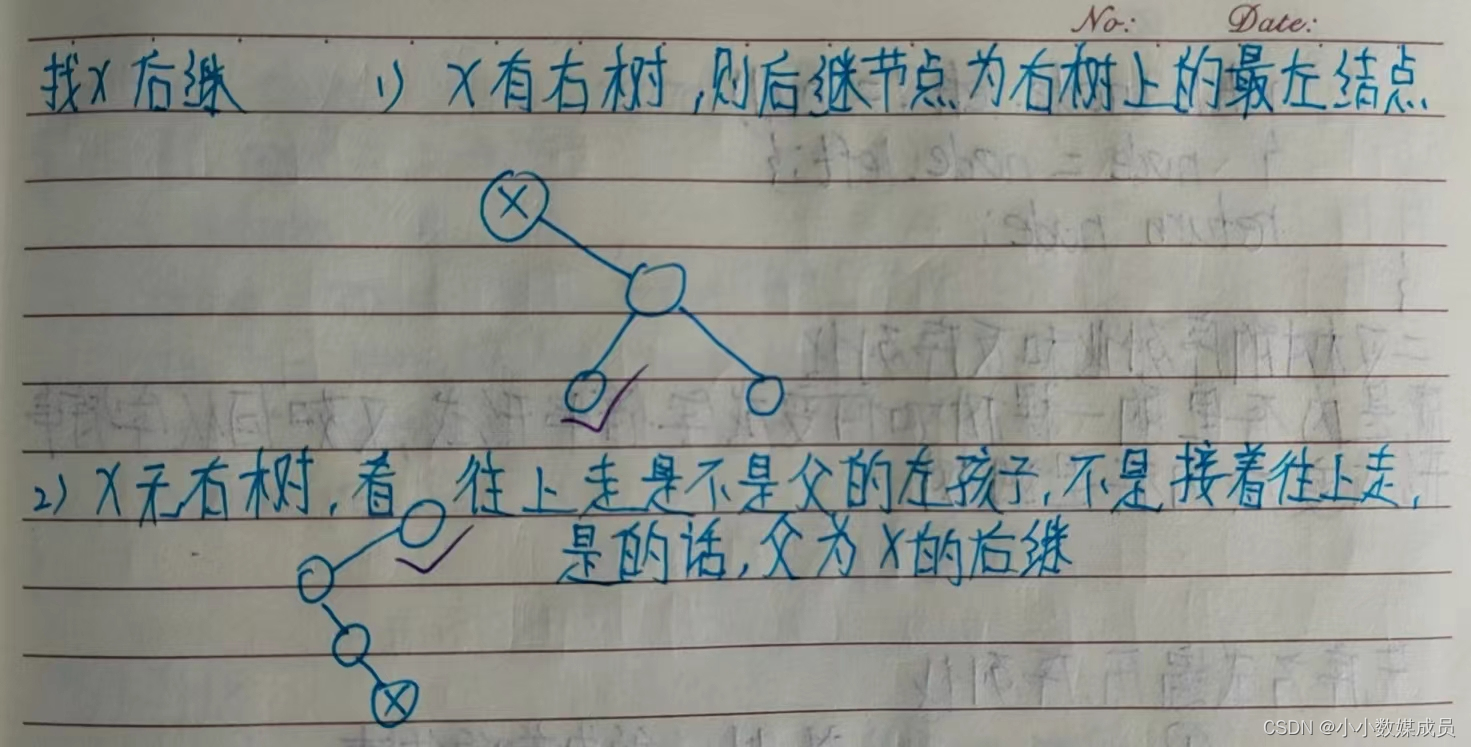 No: Date:
找X后继 1) X有右树,则后继节点为右树上的最左结点
X
2) X无右树,看 往上走是不是父的左孩子,不是接着往上走,
是的话,父为X的后继
X
CSDN @小小数媒成员